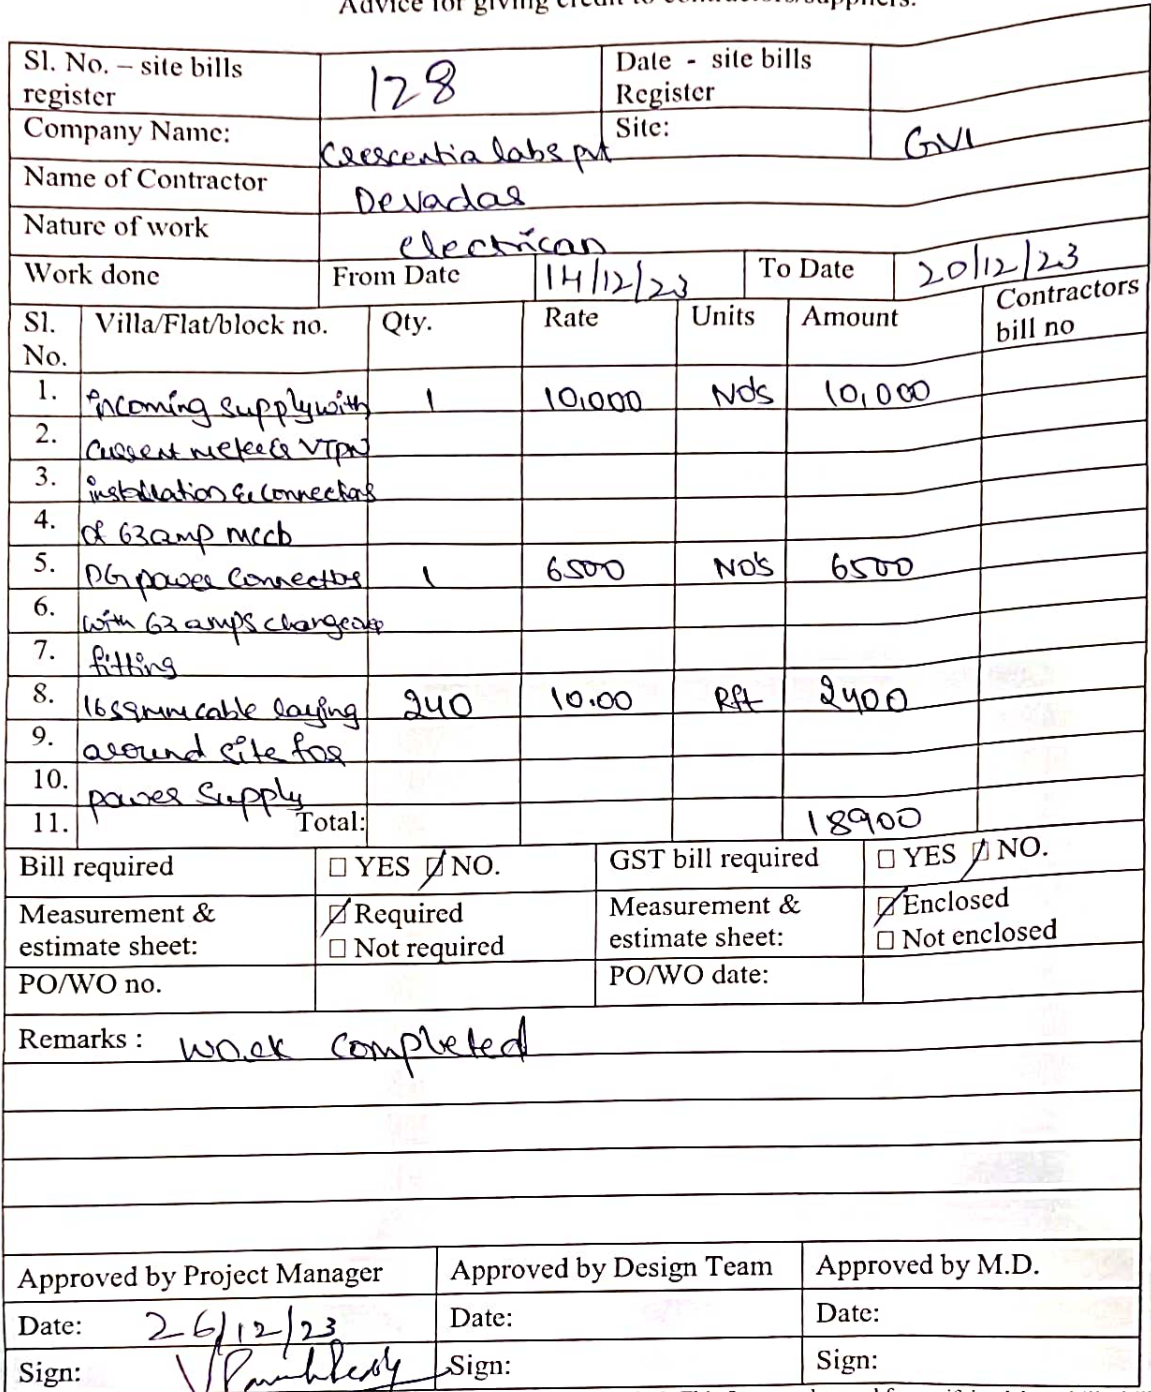 Advice for giving credit to contractors/suppliers.
Sl. No. – site bills register 128 Date - site bills Register
Company Name: Crescentia labs pvt Site: GVI
Name of Contractor Devadas
Nature of work electrican
Work done From Date 14/12/23 To Date 20/12/23
Sl. No. Villa/Flat/block no. Qty. Rate Units Amount Contractors bill no
1. incoming supply with 1 10,000 No's 10,000
2. Current meter & VTPN
3. installation & connectors
4. of 63 amp mccb
5. DG power connectors 1 6500 No's 6500
6. with 63 amps changeover
7. fitting
8. 16 sqmm cable laying 240 10.00 Rft 2400
9. around site for
10. power supply
11. Total: 18900
Bill required ☐ YES ☑ NO. GST bill required ☐ YES ☑ NO.
Measurement & estimate sheet: ☑ Required ☐ Not required Measurement & estimate sheet: ☑ Enclosed ☐ Not enclosed
PO/WO no. PO/WO date:
Remarks : work completed
Approved by Project Manager Approved by Design Team Approved by M.D.
Date: 26/12/23 Date: Date:
Sign: Sign: Sign: